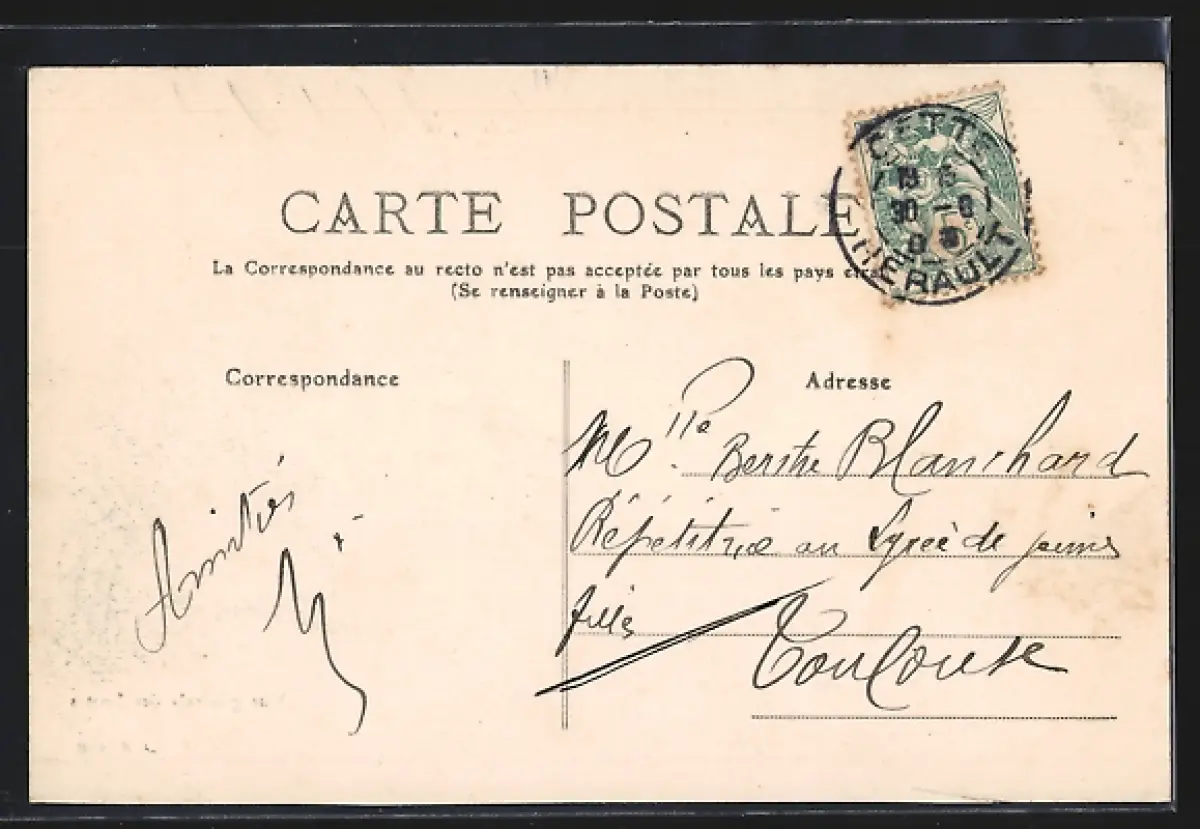 CARTE POSTALE
La Correspondance au recto n'est pas acceptée par tous les pays
(Se renseigner à la Poste)
CETTE
30 -8
HERAULT
Correspondance
Amitiés
Adresse
Mlle Berthe Blanchard
Répétitrice au Lycée de jeunes
filles
Toulouse